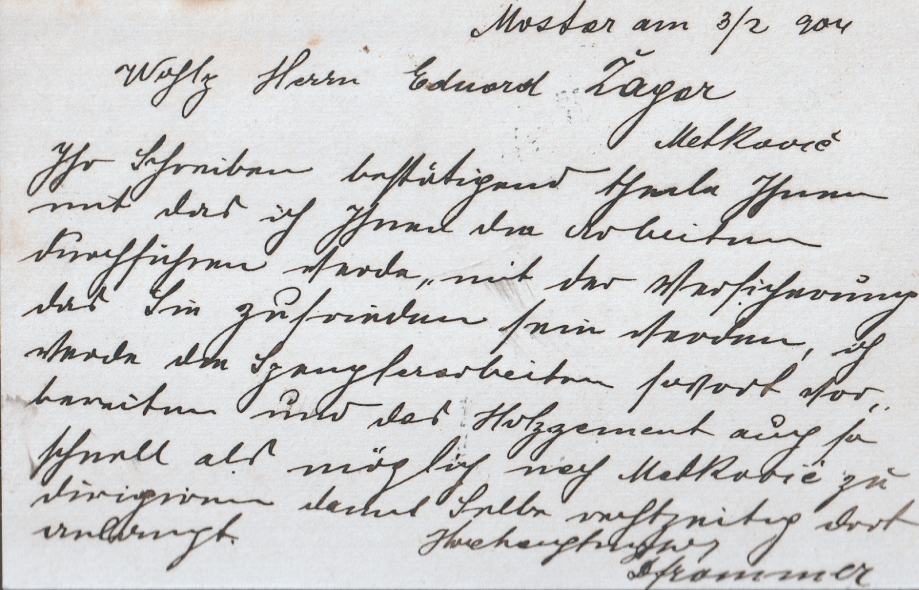 Mostar am 3/2 904
Wohlg Herrn Eduard Žagar
Metković
Ihr Schreiben bestätigend theile Ihnen
mit das ich Ihnen die Arbeiten
durchführen werde, mit der Versicherung
das Sie zufrieden sein werden, ich
werde die Spenglerarbeiten sofort vor„
bereiten und das Holzzement auch so
schnell als möglich nach Metković zu
dirigieren damit Selbe rechtzeitig dort
anlangt.
Hochachtungsvoll
Frommer